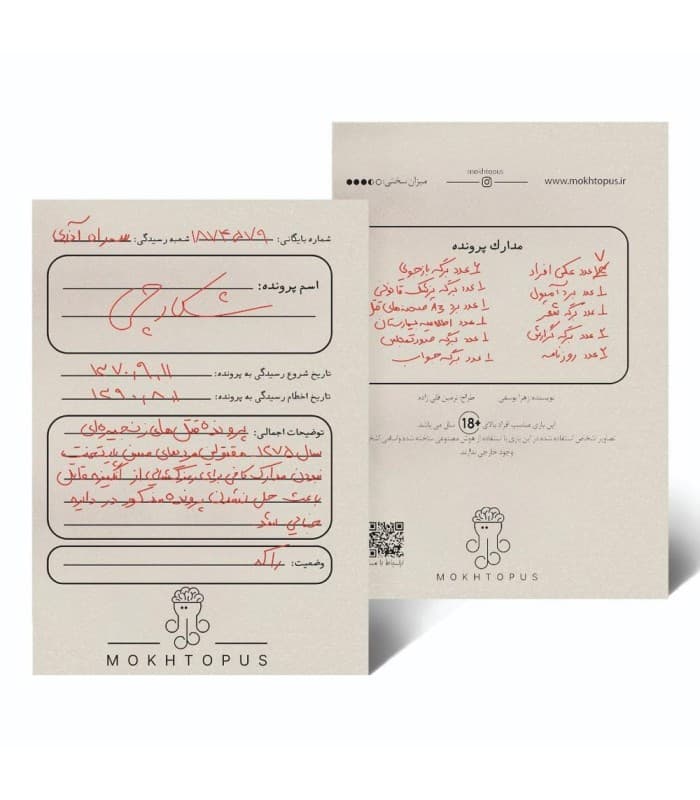 شماره بایگانی: ۱۸۷۴۵۷۹ شعبه رسیدگی:
اسم پرونده:
شکارچی
تاریخ شروع رسیدگی به پرونده: ۱۳۷۰,۹,۱۱
تاریخ اختام رسیدگی به پرونده:
توضیحات اجمالی: پرونده قتل های زنجیره‌ای
سال ۱۲۷۵ مقتولین مردهای مسن پایتخت
نبودن مدارک کافی برای از انگیزه قاتل
باعث حل نشدن پرونده مذکور در دایره
جنایی شد
وضعیت: راکد
MOKHTOPUS
mokhtopus
www.mokhtopus.ir
میزان سختی:
مدارک پرونده
۷ عدد عکس افراد
۱ عدد برد آمپول
۱ عدد برگه شعر
۲ عدد برگه گزارش
۲ عدد روزنامه
۲ عدد برگه بازجویی
۱ عدد برگه پزشک قانونی
۱ عدد برد A3 صحنه‌های قتل
۱ عدد اطلاعیه بیمارستان
۱ عدد برگه صورتمجلس
۱ عدد برگه جواب
نویسنده: زهرا یوسفی طراح: نرمین قلی زاده
این بازی مناسب افراد بالای 18+ سال می باشد
تصاویر اشخاص استفاده شده در این بازی با استفاده از هوش مصنوعی ساخته شده و اسامی
وجود خارجی ندارند
ارتباط با
MOKHTOPUS